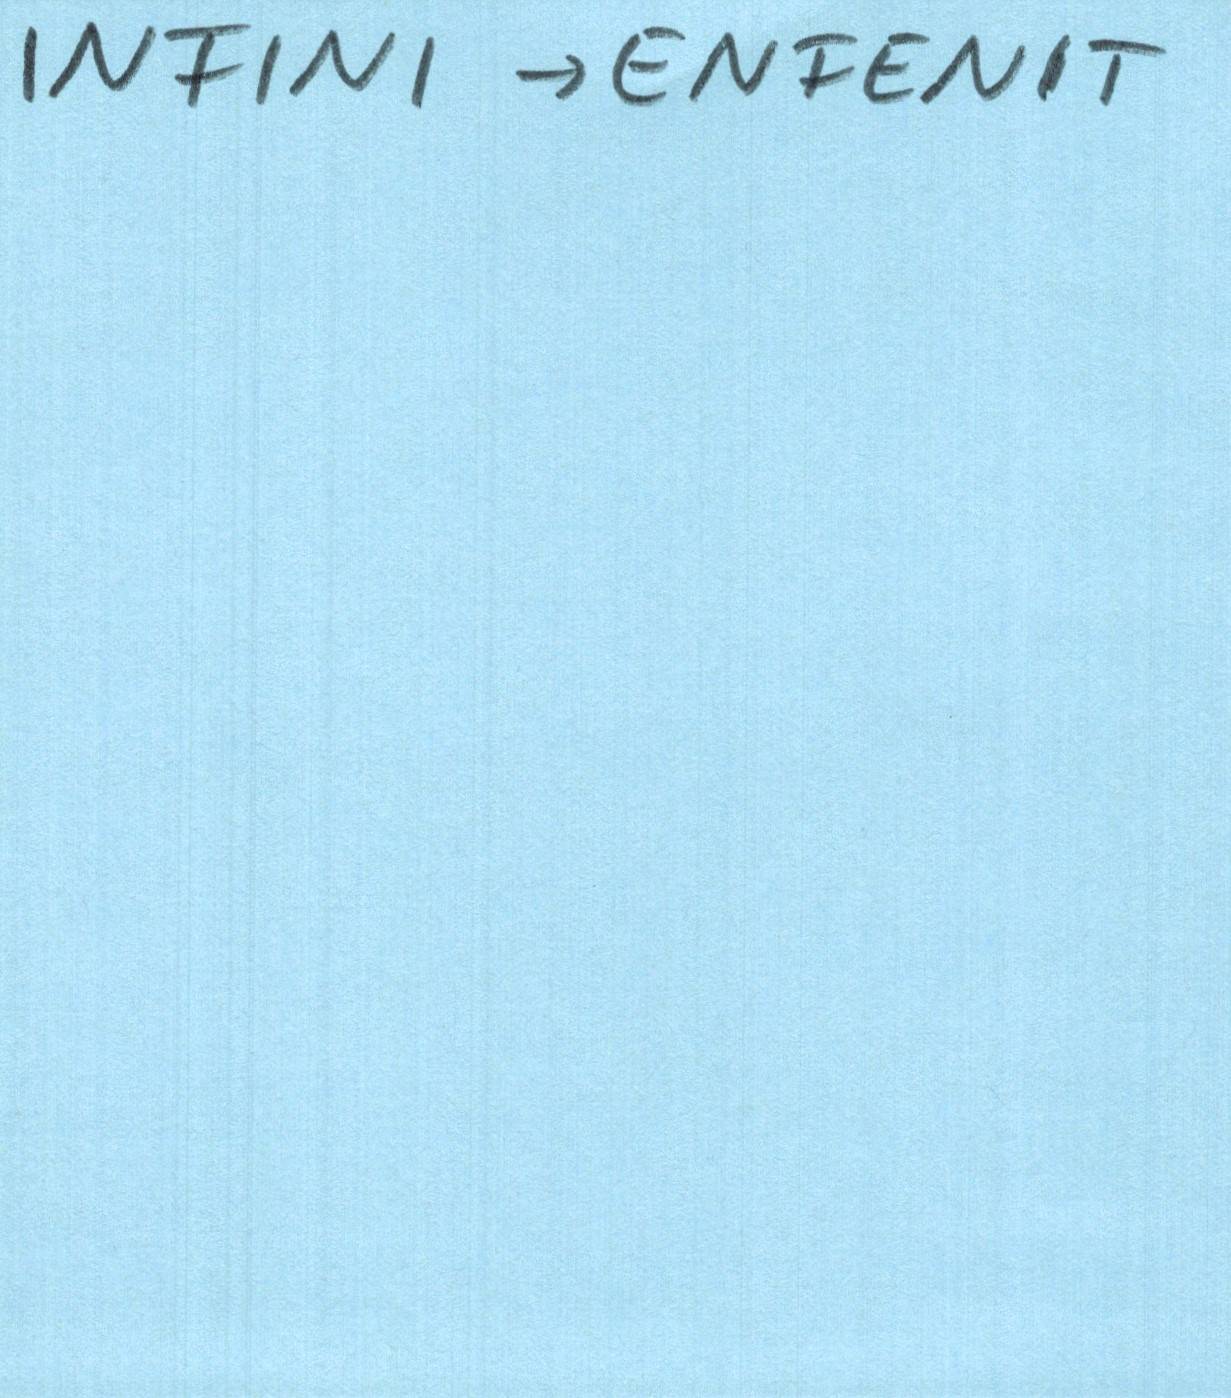 INFINI → ENFENIT